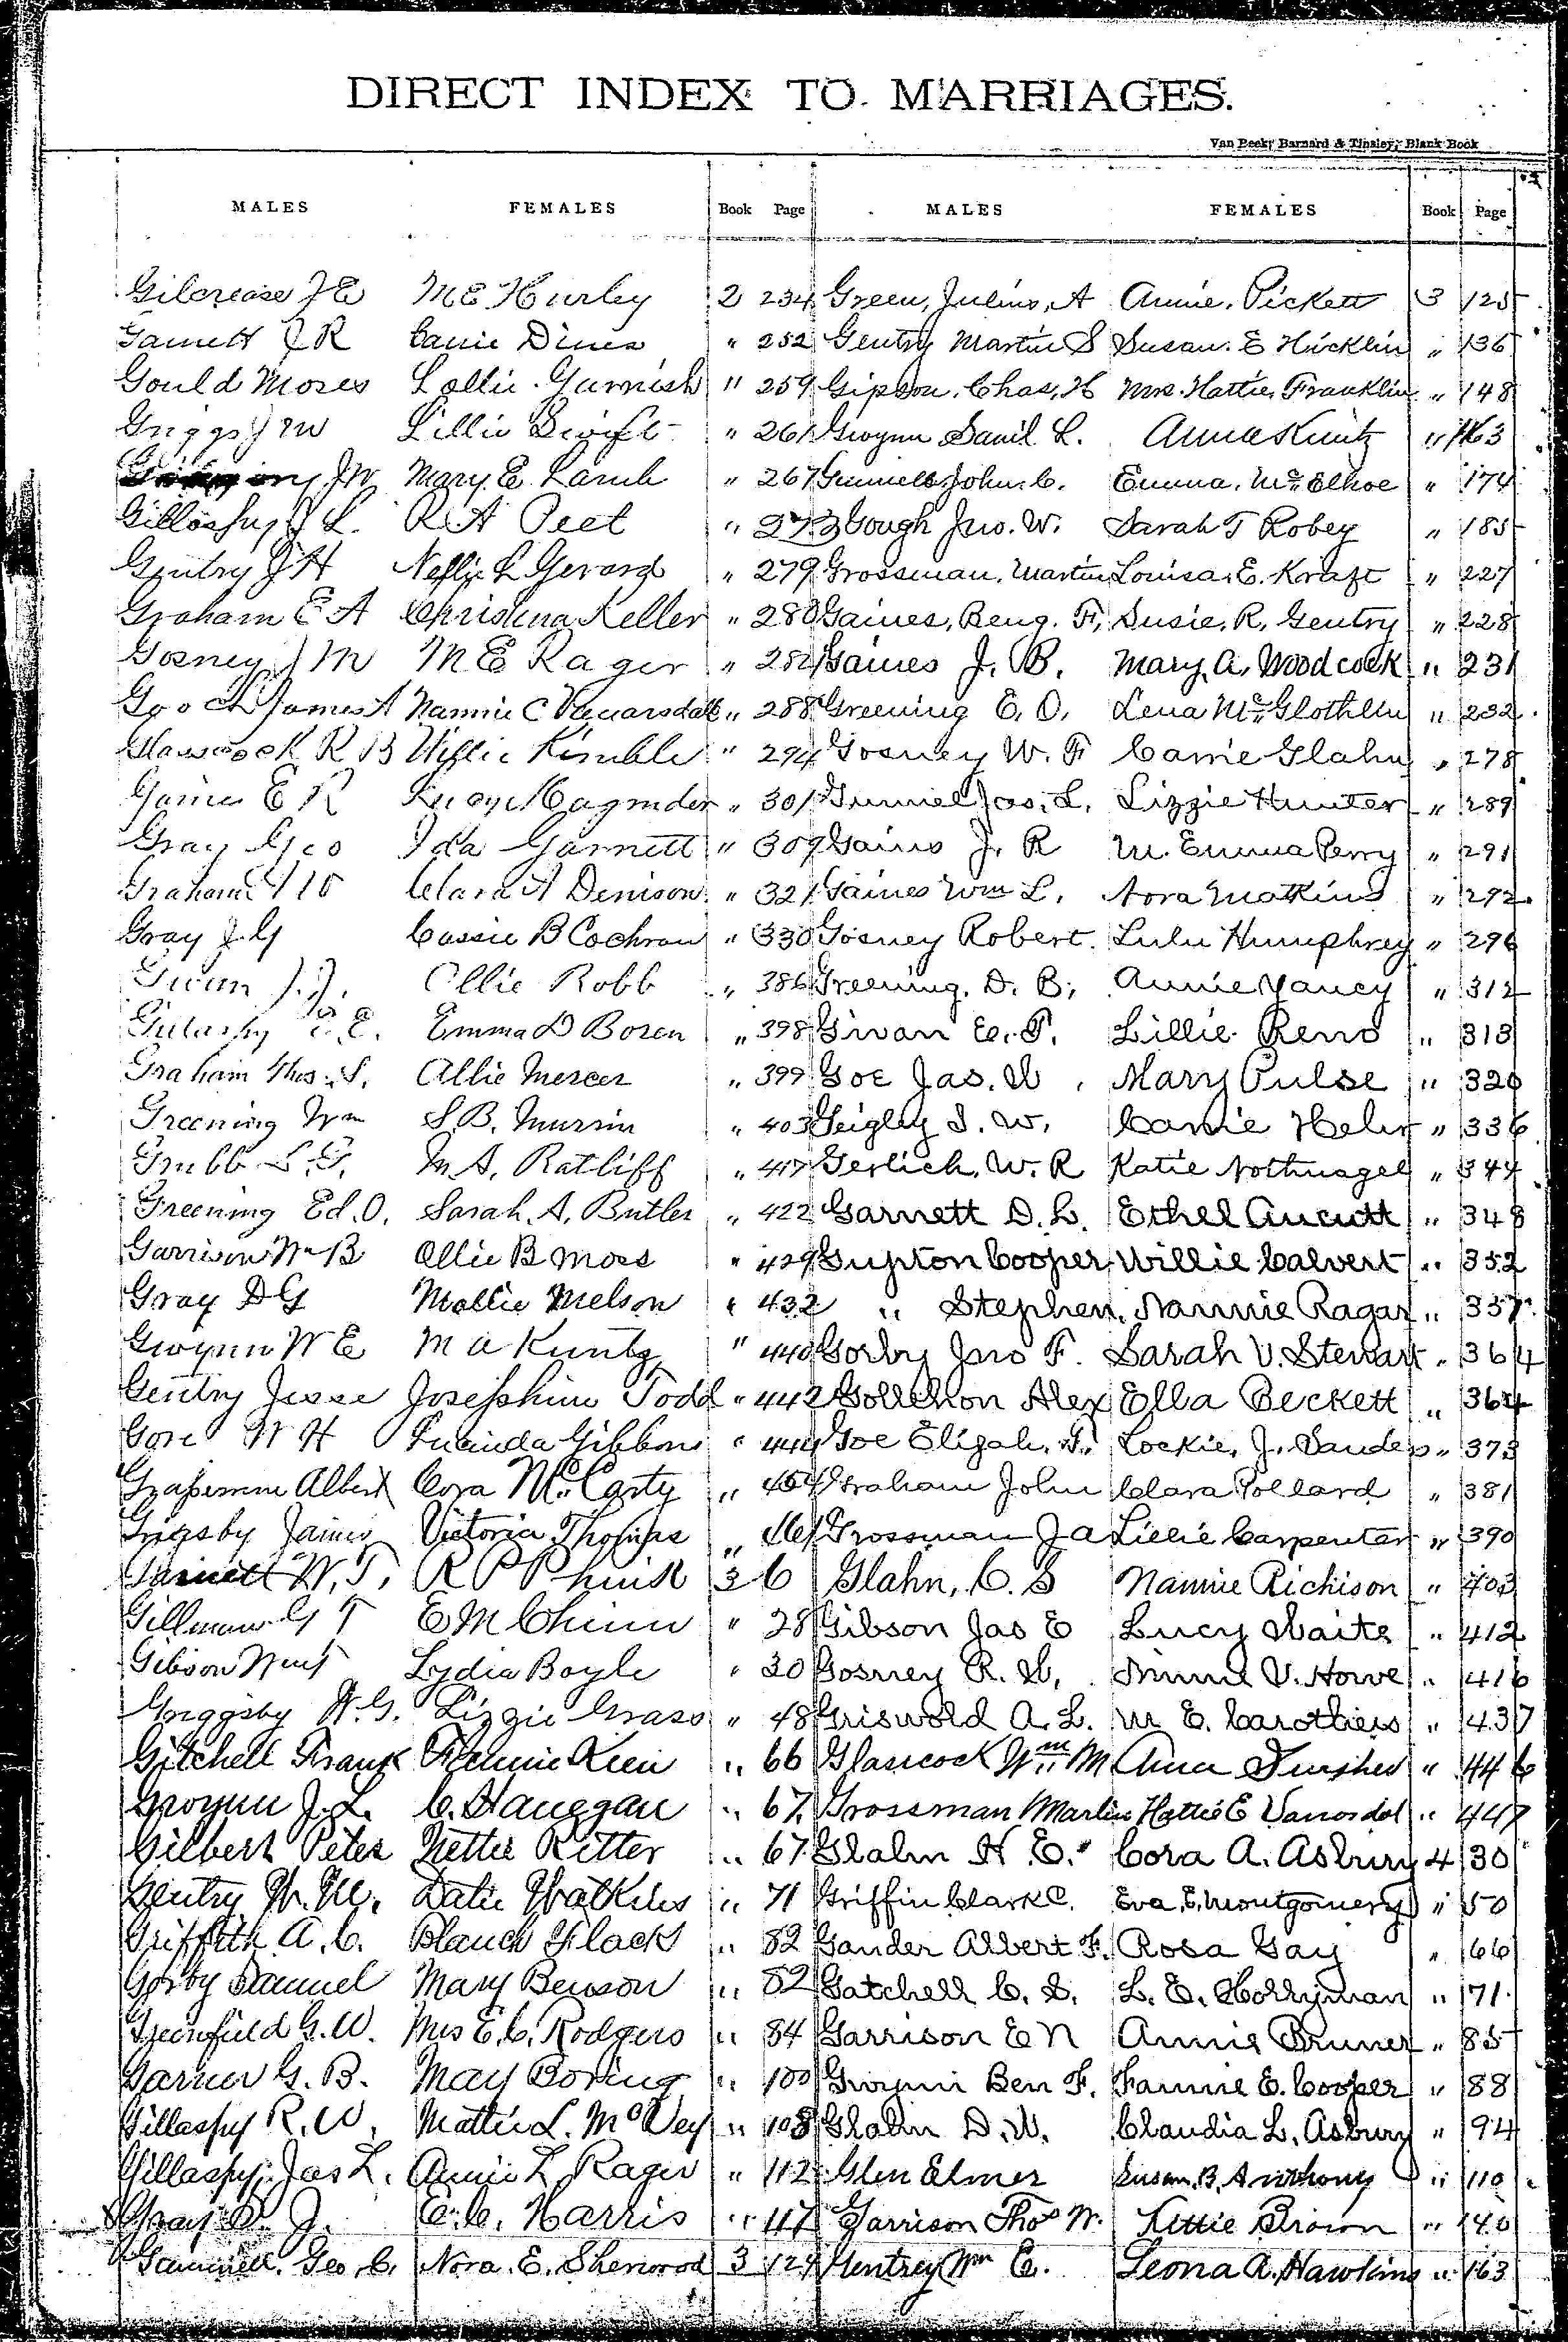 DIRECT INDEX TO MARRIAGES.
Van Beek, Barnard & Tinsley, Blank Book
MALES FEMALES Book Page MALES FEMALES Book Page
Gilcrease J E M E Hurley 2 234 Green, Julius, A Annie, Pickett 3 125
Garnett J R Carrie Dines " 252 Gentry Martin S Susan. E Hicklin " 136
Gould Moses Lollie Garnish " 259 Gipson, Chas, H Mrs. Hattie, Franklin " 148
Griggs J W Lillie Swift " 261 Gwynn Danil L. Anna Kuntz " 163
J W Mary. E. Lamb " 267 John. C. Emma, McElhoe " 174
Gillaspy J L. R A Peet " 273 Gough Jno. W. Sarah T Robey " 185
Gentry J H Nellie L Gerard " 279 Grossman, Martin Louisa, E. Kraft " 227
Graham E A Christena Keller " 280 Gaines, Benj. F, Susie, R, Gentry " 228
Gosney J M M E Rager " 282 Gaines J. B. Mary, A, Woodcock " 231
Gooch James A Nannie C Vanarsdall " 288 Greening E. O, Lena McGlothlin " 232
Glasscock R B Willie Kimble " 294 Gosney W. F Carrie Glahn " 278
Gaines E R Lucy Magruder " 301 Gunnel Jas, L, Lizzie Hunter " 289
Gray Geo Ida Garnett " 309 Gains J. R M. Emma Perry " 291
Graham Clara A Denison " 321 Gaines Wm L. Nora Matkins " 292
Gray J. G Cassie B Cochran " 330 Gosney Robert. Lulu Humphrey " 296
J. J. Ollie Robb " 386 Greening, D. B, Annie Yancy " 312
Emma D Boren " 398 Givan E. F. Lillie Reno " 313
Graham Thos. S. Allie Mercer " 399 Goe Jas. W. Mary Pulse " 320
Greening Wm S. B. Murrin " 403 Geigley S. W. Carrie Hehr " 336
Grubb S. F. M A. Ratliff " 417 Gerlich, W. R Katie Nothnagel " 344
Greening Ed. O. Sarah. A. Butler " 422 Garnett D. L. Ethel Aucutt " 348
Garrison Wm B Ollie B Moss " 429 Gupton Cooper Willie Calvert " 352
Gray D G Mollie Melson " 432 " Stephen, Nannie Ragar " 357
Gwynn W E M A Kuntz " 440 Gorby Jno F. Sarah V. Stewart " 364
Gentry Jesse Josephine Todd " 442 Gollehon Alex Ella Beckett " 364
Gore W H Lucinda Gibbons " 444 Goe Elijah, T. Lockie, J. Sanders " 373
Albert Cora McCarty " 454 Graham John Clara Pollard " 381
Grigsby James Victoria Thomas " 461 Grossman J A Lillie Carpenter " 390
Garnett W. T. R P 3 6 Glahn, C. S Nannie Richison " 403
Gillman G T E M Chinn " 28 Gibson Jas E Lucy Waits " 412
Gibson Lydia Boyle " 30 Gosney R. W. Minnie V. Howe " 416
Griggsby W. G. Lizzie Grass " 48 Griswold A. L. M E. Carothers " 437
Gitchell Frank Fannie " 66 Glascock Wm M Anna " 446
Gwynn J. L. C. Hanegan " 67 Grossman Martin Hattie E Vanosdol " 447
Gilbert Peter Nettie Ritter " 67 Glahn H. E. Cora A. Asbury 4 30
Gentry W. M. Katie Watkins " 71 Griffin Clark C. Eva, E, Montgomery " 50
Griffith A. C. Blanch Flack " 82 Gander Albert F. Rosa Gay " 66
Gorby Samuel Mary Benson " 82 Gatchell C. S. L. E. Holtyman " 71
Greenfield G. W. Mrs E. C. Rodgers " 84 Garrison E N Annie Bruner " 85
Garner G. B. May Boring " 100 Gwynn Ben F. Fannie E. Cooper " 88
Gillaspy R. W. Mattie L. McVey " 108 Glahn D. W. Claudia L, Asbury " 94
Gillaspy, Jas L. Annie L Rager " 112 Glen Elmer Susan, B, Anthony " 110
Gray J. E. C. Harris " 117 Garrison Thos W. Lettie Brown " 140
Geo. C. Nora. E. Sherwood 3 124 Gentrey Wm E. Leona A. Hawkins " 163